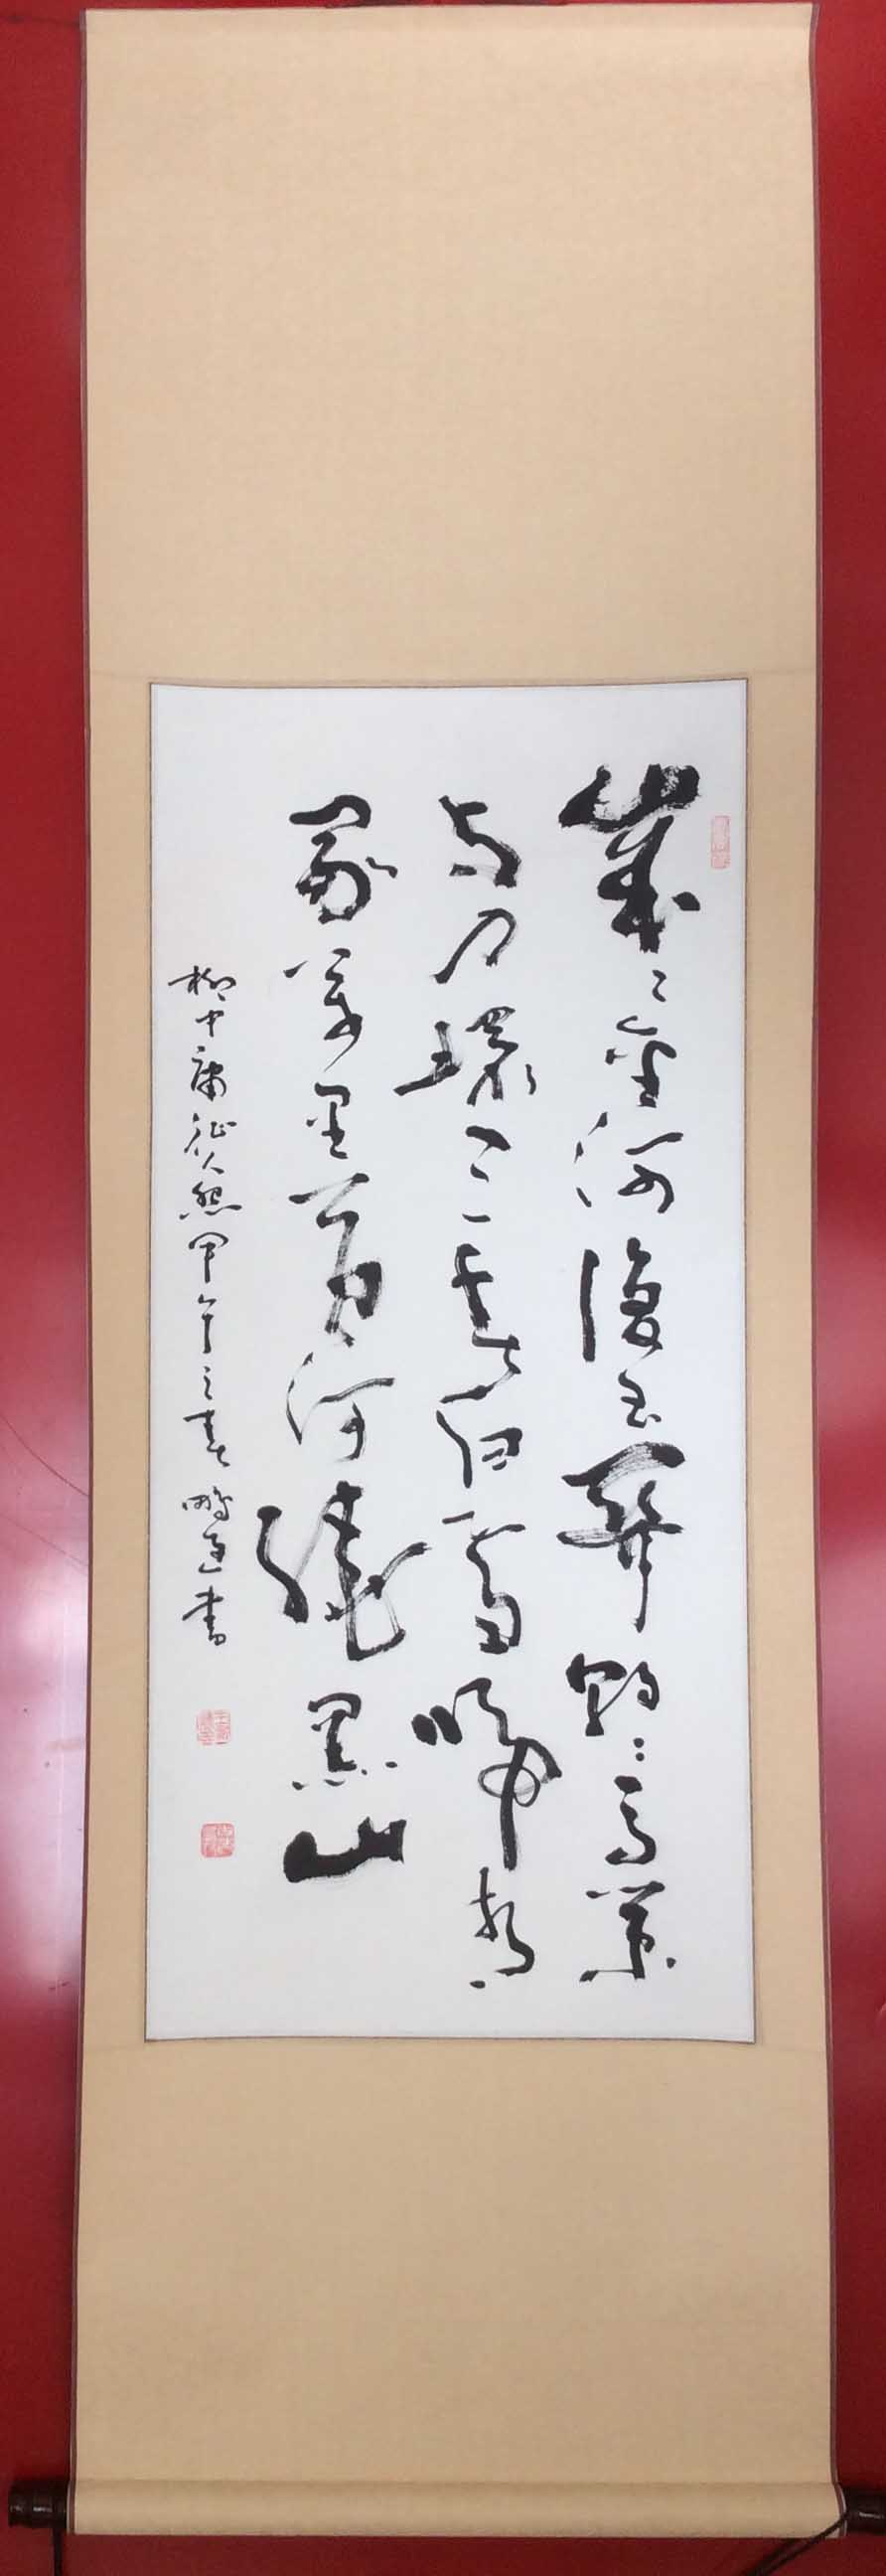 歲〻金河復玉關朝〻馬策
与刀環三春白雪歸青
冢萬里黃河繞黑山
柳中庸征人怨甲午之春書